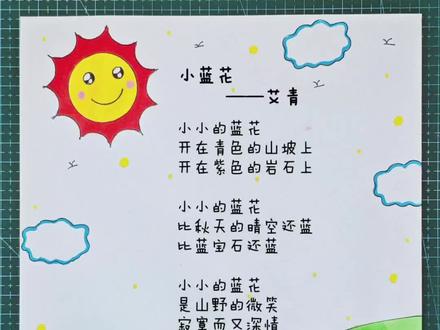 小蓝花
——艾青
小小的蓝花
开在青色的山坡上
开在紫色的岩石上
小小的蓝花
比秋天的晴空还蓝
比蓝宝石还蓝
小小的蓝花
是山野的微笑
寂寞而又深情